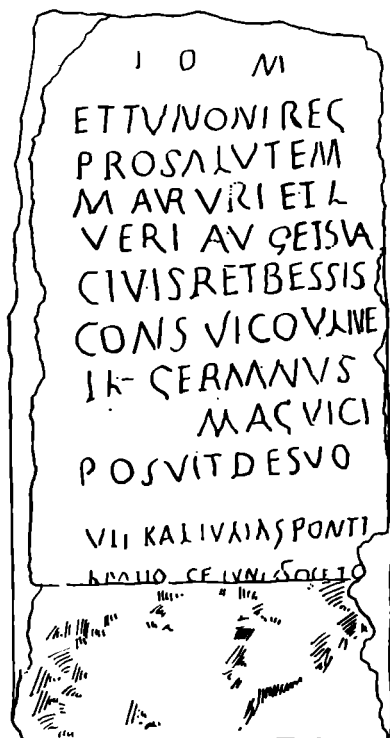 I O M
ETTVNONI REG
PROSALVTEM
M AVR VRI ET L
VERI AV GETSVA
CIVISRETBESSIS
CONS VICOVLINE
IR GERMANVS
MAG VICI
POSVITDESVO
VII KAL IVNIAS PONTI